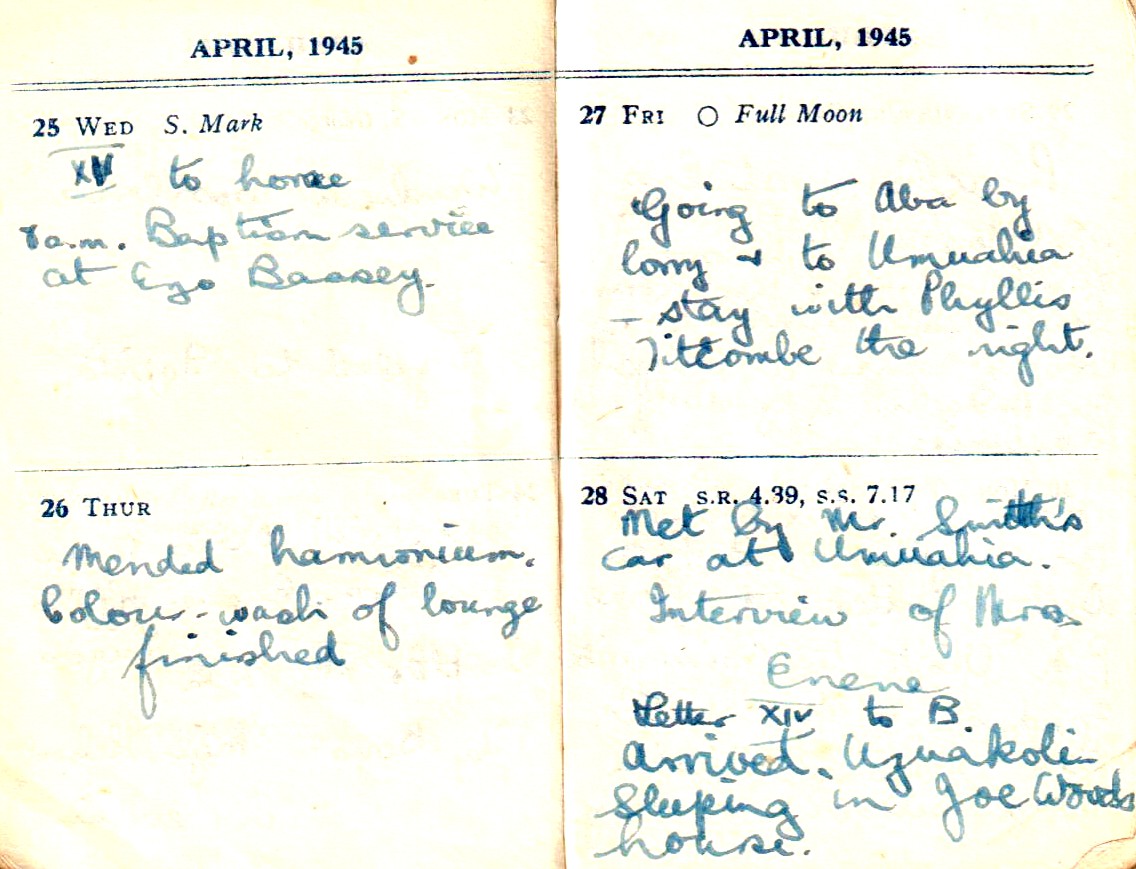 APRIL, 1945
25 WED S. Mark
XV to home
7a.m. Baptism service
at Ego Bassey.
26 THUR
Mended harmonium.
Colour-wash of lounge
finished
APRIL, 1945
27 FRI O Full Moon
Going to Aba by
lorry & to Umuahia
- stay with Phyllis
Titcombe the night.
28 SAT S.R. 4.39, S.S. 7.17
Met by Mr. Smith's
car at Umuahia.
Interview of Mrs.
Enene
Letter XIV to B.
arrived. Uzuakoli
Sleeping in Joe Woods
house.